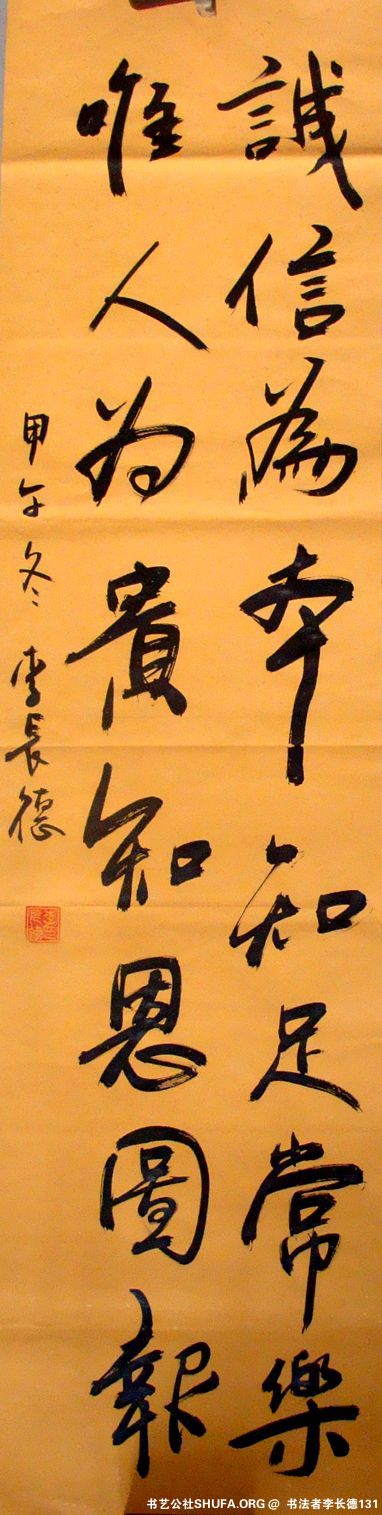 誠信為本知足常樂
唯人为貴知恩圖報
甲午冬 李長德
书艺公社SHUFA.ORG @ 书法者李长德131